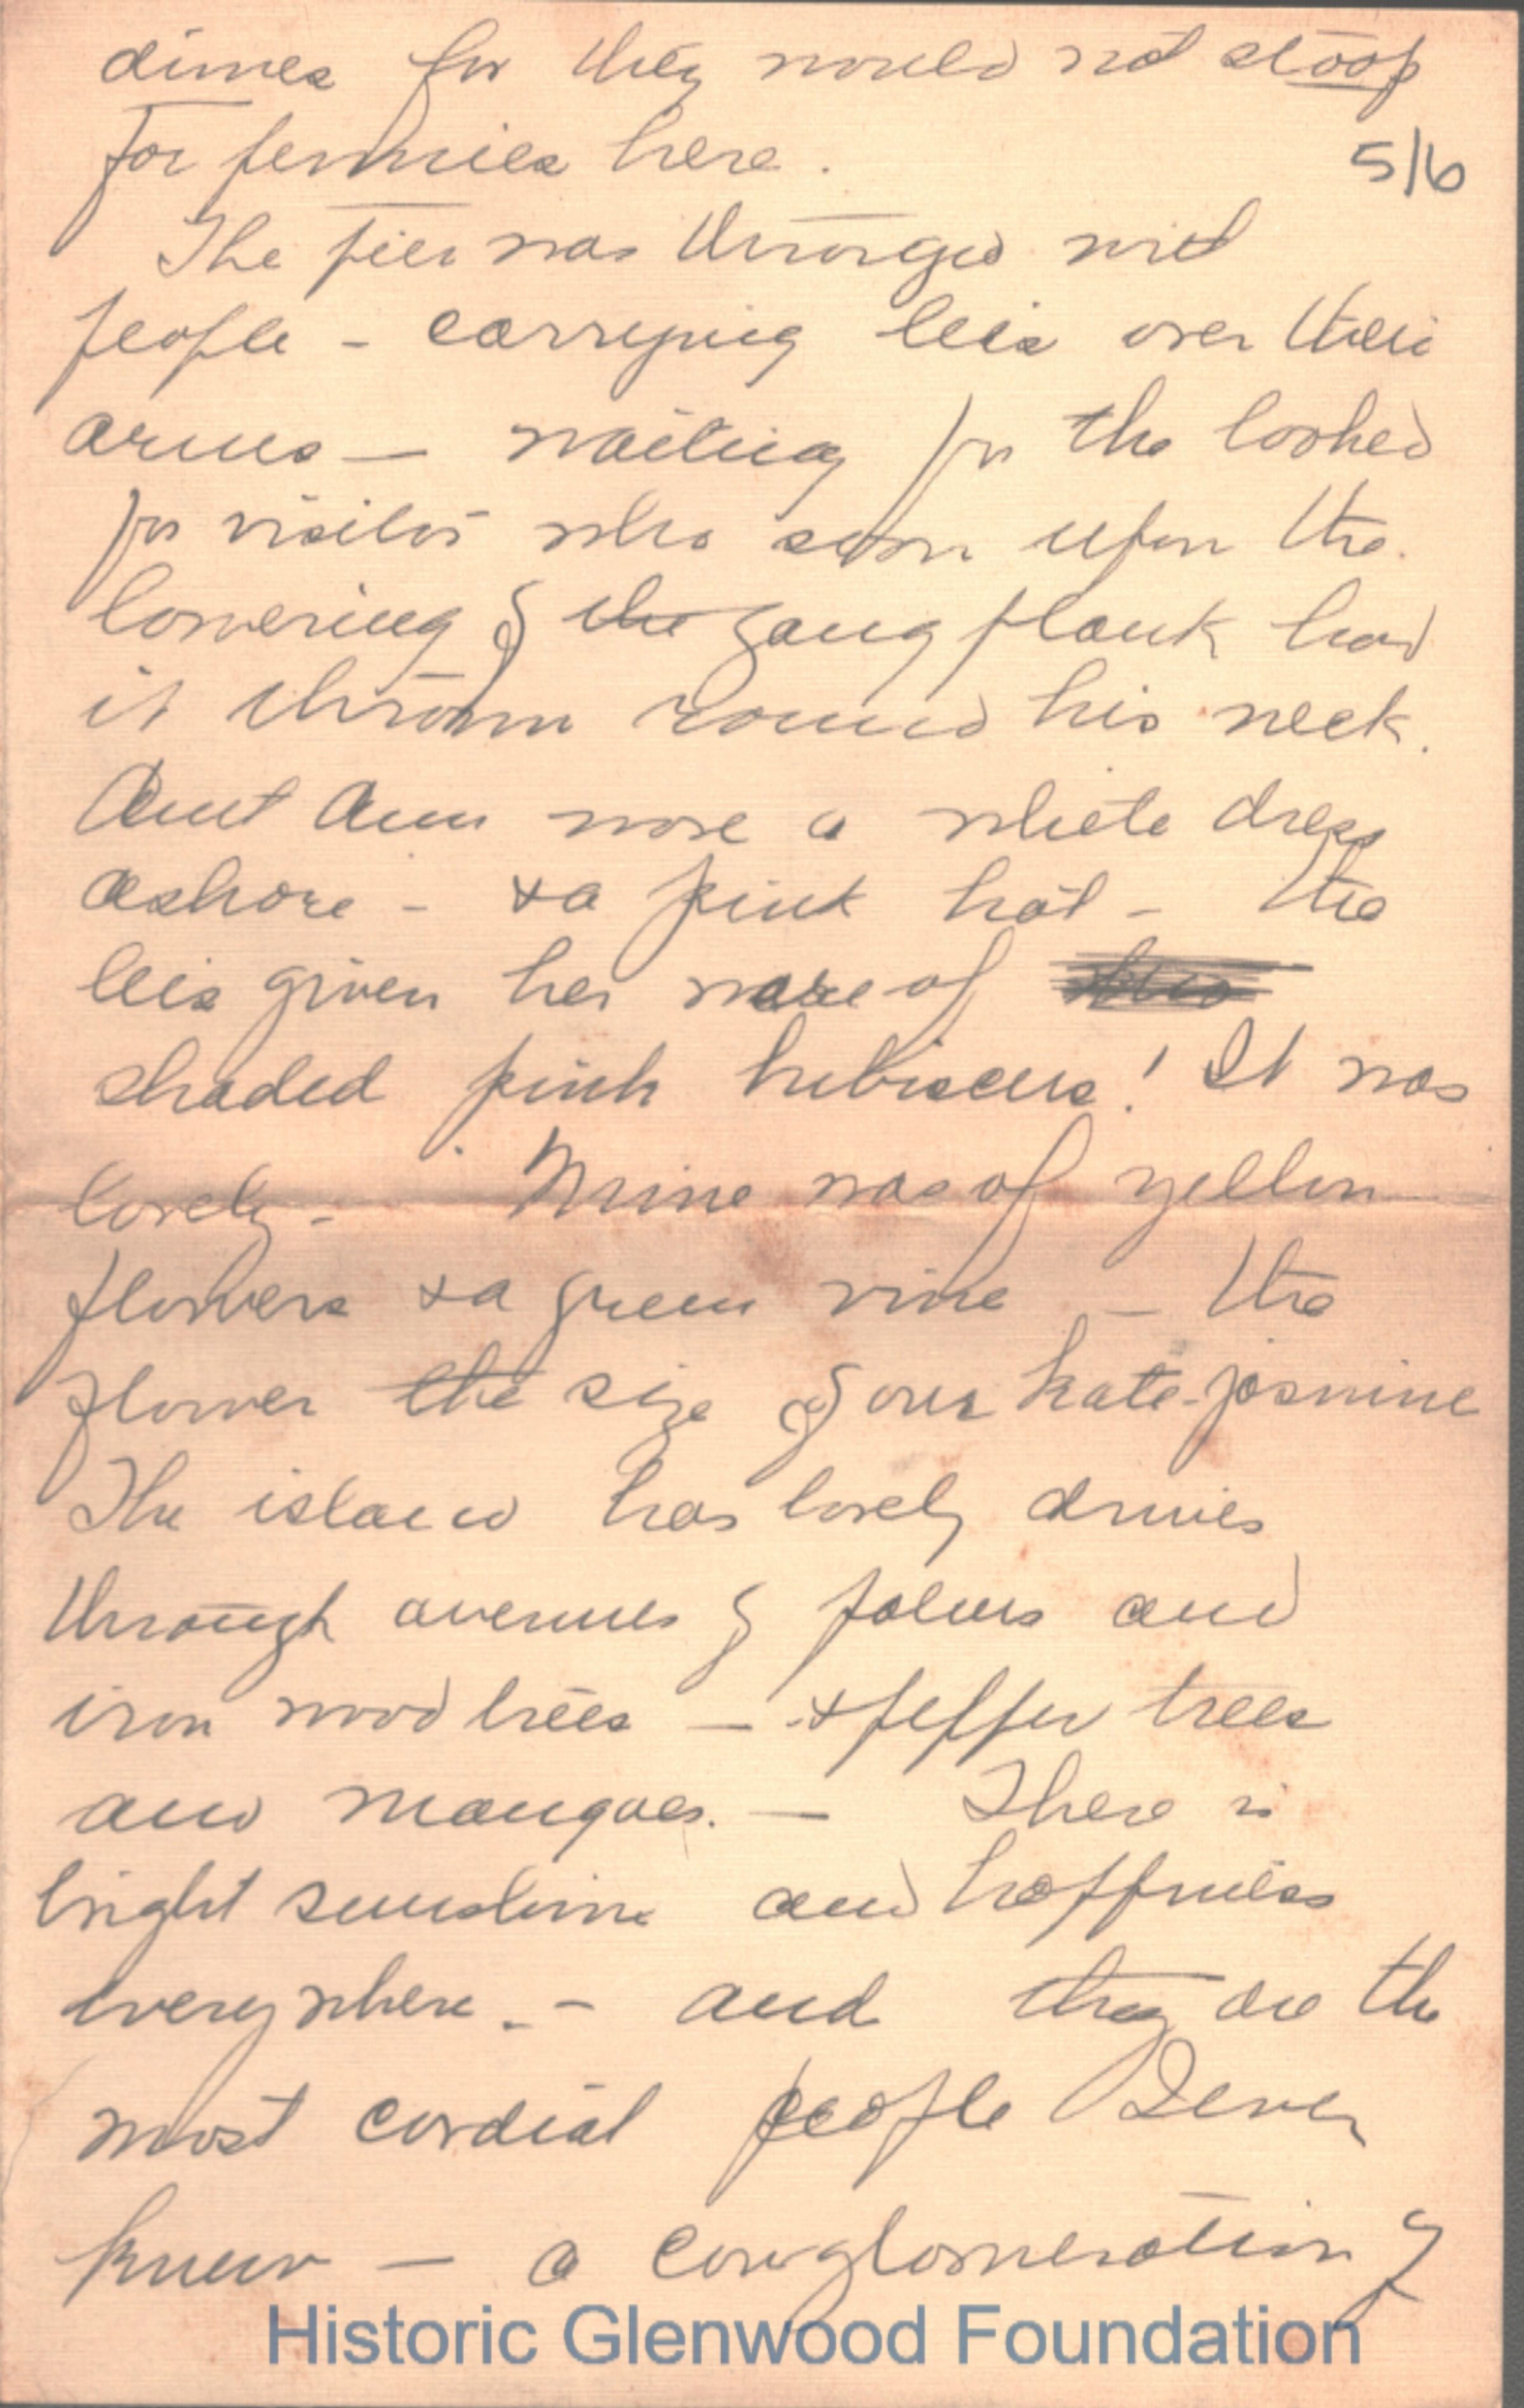 dimes for they would not stoop
for pennies here.
5/6
The pier was thronged with
people - carrying leis over their
arms — waiting for the looked
for visitor who soon upon the
lowering of the gang plank had
it thrown round his neck.
Aunt Ann wore a white dress
ashore - & a pink hat - the
leis given her were of
shaded pink hibiscus! It was
lovely - Mine was of yellow
flowers & a green vine - the
flower the size of our kate-jasmine
The island has lovely drives
through avenues of palms and
iron wood trees — & pepper trees
and mangoes. — There is
bright sunshine and happiness
everywhere. - and they are the
most cordial people I ever
knew — a conglomeration of
Historic Glenwood Foundation